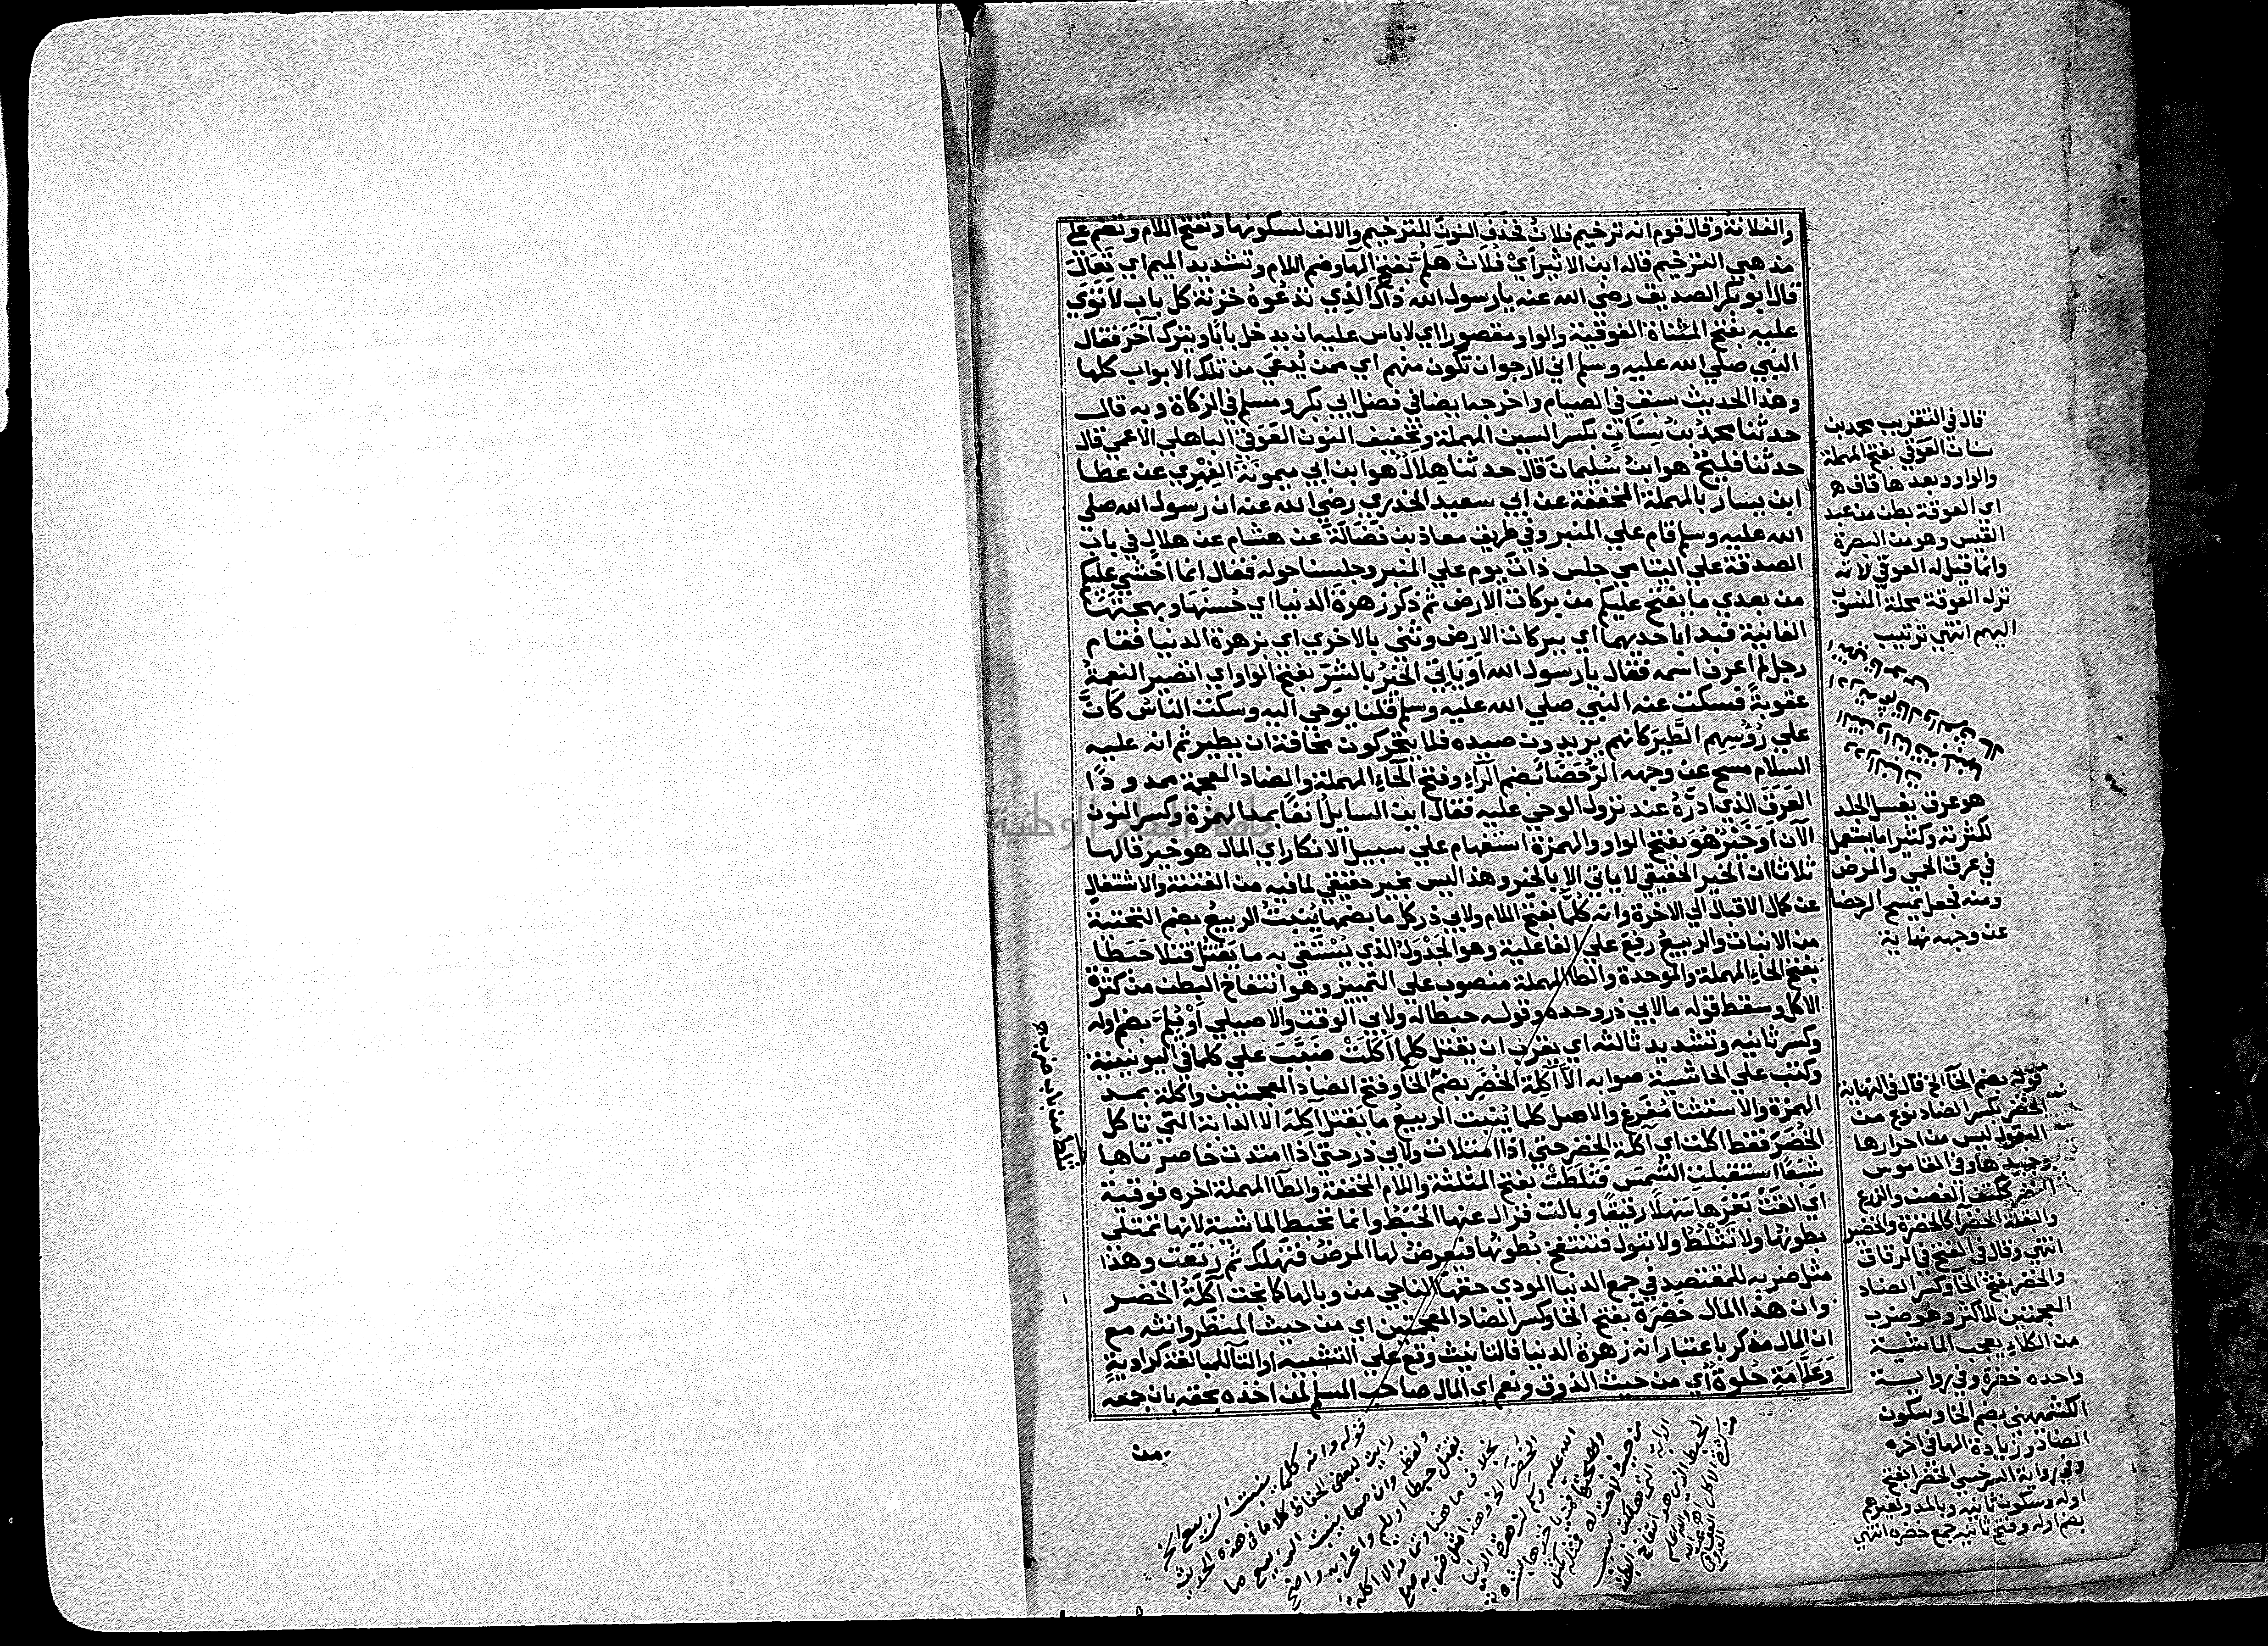 والفلانة وقال قوم انه ترخيم فلان فحذف النون للترخيم والالف لسكونها وتفتح اللام وتضم علي
مذهبي الترخيم قاله ابن الاثير أي فُلَانُ هَلُمَّ بفتح الهاء وضم اللام وتشديد الميم اي تَعَالَ
قال ابو بكر الصديق رضي الله عنه يا رسول الله ذاك الذي تدعُوهُ خزنة كل باب لا تَوَي
عليه بفتح المثناة الفوقية والواو مقصورا اي لا باس عليه ان يدخل بابًا ويترك آخَرَ فقال
النبي صلي الله عليه وسلم اني لارجو ان تكون منهم اي ممن يُدعَي من تلك الابواب كلها
وهذا الحديث سبق في الصيام واخرجه ايضا في فضل ابي بكر ومسلم في الزكاة وبه قال
حدثنا محمد بنُ سِنَانٍ بكسر السين المهملة وتخفيف النون العَوَقي الباهلي الاعمي قال
حدثنا فليحٌ هو ابنُ سُليمانَ قال حدثنا هِلالٌ هو ابن ابي ميمونة الفِهْرِي عن عطا
ابن يسار بالمهملة المخففة عن ابي سعيد الخدري رضي الله عنه ان رسول الله صلي
الله عليه وسلم قام علي المنبر وفي طريق معاذ بن فَضَالَةَ عن هشام عن هلال في باب
الصدقة علي اليتامي جلس ذاتَ يوم علي المنبر وجلسنا حوله فقال انما اخشي عليكم
من بعدي ما يفتح عليكم من بركات الارض ثم ذكر زهرة الدنيا اي حُسنَهَا وبهجتَهَا
الفانية فبدا باحديهما اي ببركات الارض وثني بالاخري اي بزهرة الدنيا فقام
رجل لم اعرف اسمه فقال يا رسول الله أوَ يَاتي الخيْرُ بالشرّ بفتح الواو اي اتصير النعمةُ
عقوبةً فسكت عنه النبي صلي الله عليه وسلم قلنا يوحي اليه وسكت الناسُ كَانَّ
علي رُؤُسِهِم الطَّيرَ كانهم يريدون صيده فلا يتحركون مخافة ان يطير ثم انه عليه
السلام مسح عن وجهه الرُّحَضَاءَ بضم الرَّاءِ وفتح الحَاءِ المهملة والضاد المعجمة ممدودًا
العَرَقَ الذي ادرَّهُ عند نزول الوحي عليه فقال اين السايل آنِفًا بمد الهمزة وكسر النون
الآن أوَ خَيْرٌ هُوَ بفتح الواو والهمزة استفهام علي سبيل الانكار اي المال هو خير قالها
ثلاثا ان الخير الحقيقي لا ياتي الا بالخير وهذا ليس بخير حقيقي لما فيه من الفتنة والاشتغال
عن كمال الاقبال الي الاخرة وانه كُلَّمَا بفتح اللام ولابي ذر كل ما بضمها يُنبتُ الربيعُ بضم التحتية
من الانبات والربيعُ رفعَ علي الفاعلية وهو الجَدْوَلُ الذي يُسْتَقي به ما يَقتُلُ قتلا حَبَطًا
بفتح الحاء المهملة والموحدة والطا المهملة منصوب علي التمييز وهو انتفاخ البطن من كثرة
الاكل وسقط قوله ما لابي ذر وحده وقوله حبطا له ولابي الوقت والاصيلي أوْ يُلِمَّ بضم اوله
وكسر ثانيه وتشديد ثالثه اي يقرب ان يقتل كلما أكَلَتْ ضَبَّبَ علي كلما في اليونينية
وكتب علي الحاشية صوابه الَّا آكِلَةَ الخُضَرِ بضم الخا وفتح الضاد المعجمتين واكلة بمد
الهمزة والاستثنا مُفَرَّغ والاصل كلما يُنبت الربيعُ ما يَقتل آكِلَه الا الدابة التي تاكل
الخُضَرَ فقط اكلت اي آكلة الخضر حتي اذا امتلات ولابي ذر حتي اذا امتدت خاصرتاها
شبَعًا استقبلت الشمسَ فَثَلَطَتْ بفتح المثلثة واللام المخففة والطا المهملة اخره فوقية
اي القَتْ بَعْرَهَا سَهلًا رقيقًا وبالت فزال عنها الحَبَطُ وانما تحبط الماشية لانها تمتلي
بطونُها ولا تَثْلِطُ ولا تبول فتنتفخ بُطونُها فيعرضُ لها المرضُ فتهلك ثم رَتَعت وهذا
مثل ضربه للمقتصد في جمع الدنيا المودي حقها الناجي من وبالها كما نجت آكِلَةُ الخضر
وان هذا المال خَضِرَةٌ بفتح الخا وكسر الضاد المعجمتين اي من حيث المنظر وانثه مع
ان المال مذكر باعتبار انه زهرةُ الدنيا فالتانيث وقع علي التشبيه او التآ للمبالغة كراويةٍ
وَعَلَّامَةٍ حُلوةٌ اي من حيث الذوق ونعم اي المال صاحب المسلم لمن اخذه بحقه بان جمعه
من
قال في التقريب محمد بن
سنان العوقي بفتح المهملة
والواو وبعدها قاف ه
اي العوقة بطن من عبد
القيس وهو من البصرة
وانما قيل له العوقي لانه
نزل العوقة محلة المنسوب
اليهم انتهي ترتيب
هو عرق يغسل الجلد
لكثرته وكثيرا ما يستعمل
في عرق الحمي والمرض
ومنه فجعل يمسح الرحضا
عن وجهه نهاية
قوله بضم الخآ الخ قال في النهاية
الخضر بكسر الضاد نوع من
البقول ليس من احرارها
وجيدها وفي القاموس
الخضر ككتف الغصن والزرع
والبقلة الخضرآ كالخضرة والخضير
انتهي وقال في الفتح في الرقاق
والخضر بفتح الخا وكسر الضاد
المعجمتين للاكثر وهو ضرب
من الكلاء يعجب الماشية
واحده خضرة وفي رواية
الكشميهني بضم الخا وسكون
الضاد وزيادة الها في اخره
وفي رواية السرخسي الخضرا بفتح
اوله وسكون ثانيه وبالمد ولغيرهم
بضم اوله وفتح ثانيه جمع خضره انتهي
ثلط من باب ضرب
قوله وانه كلما ينبت الربيع الخ
رايت لبعض الحفاظ كلاما في هذه الحديث
ولفظه وان مما ينبت الربيع ما
يقتل حبطا او يلم واعرابه واضح
جامعة النجاح الوطنية